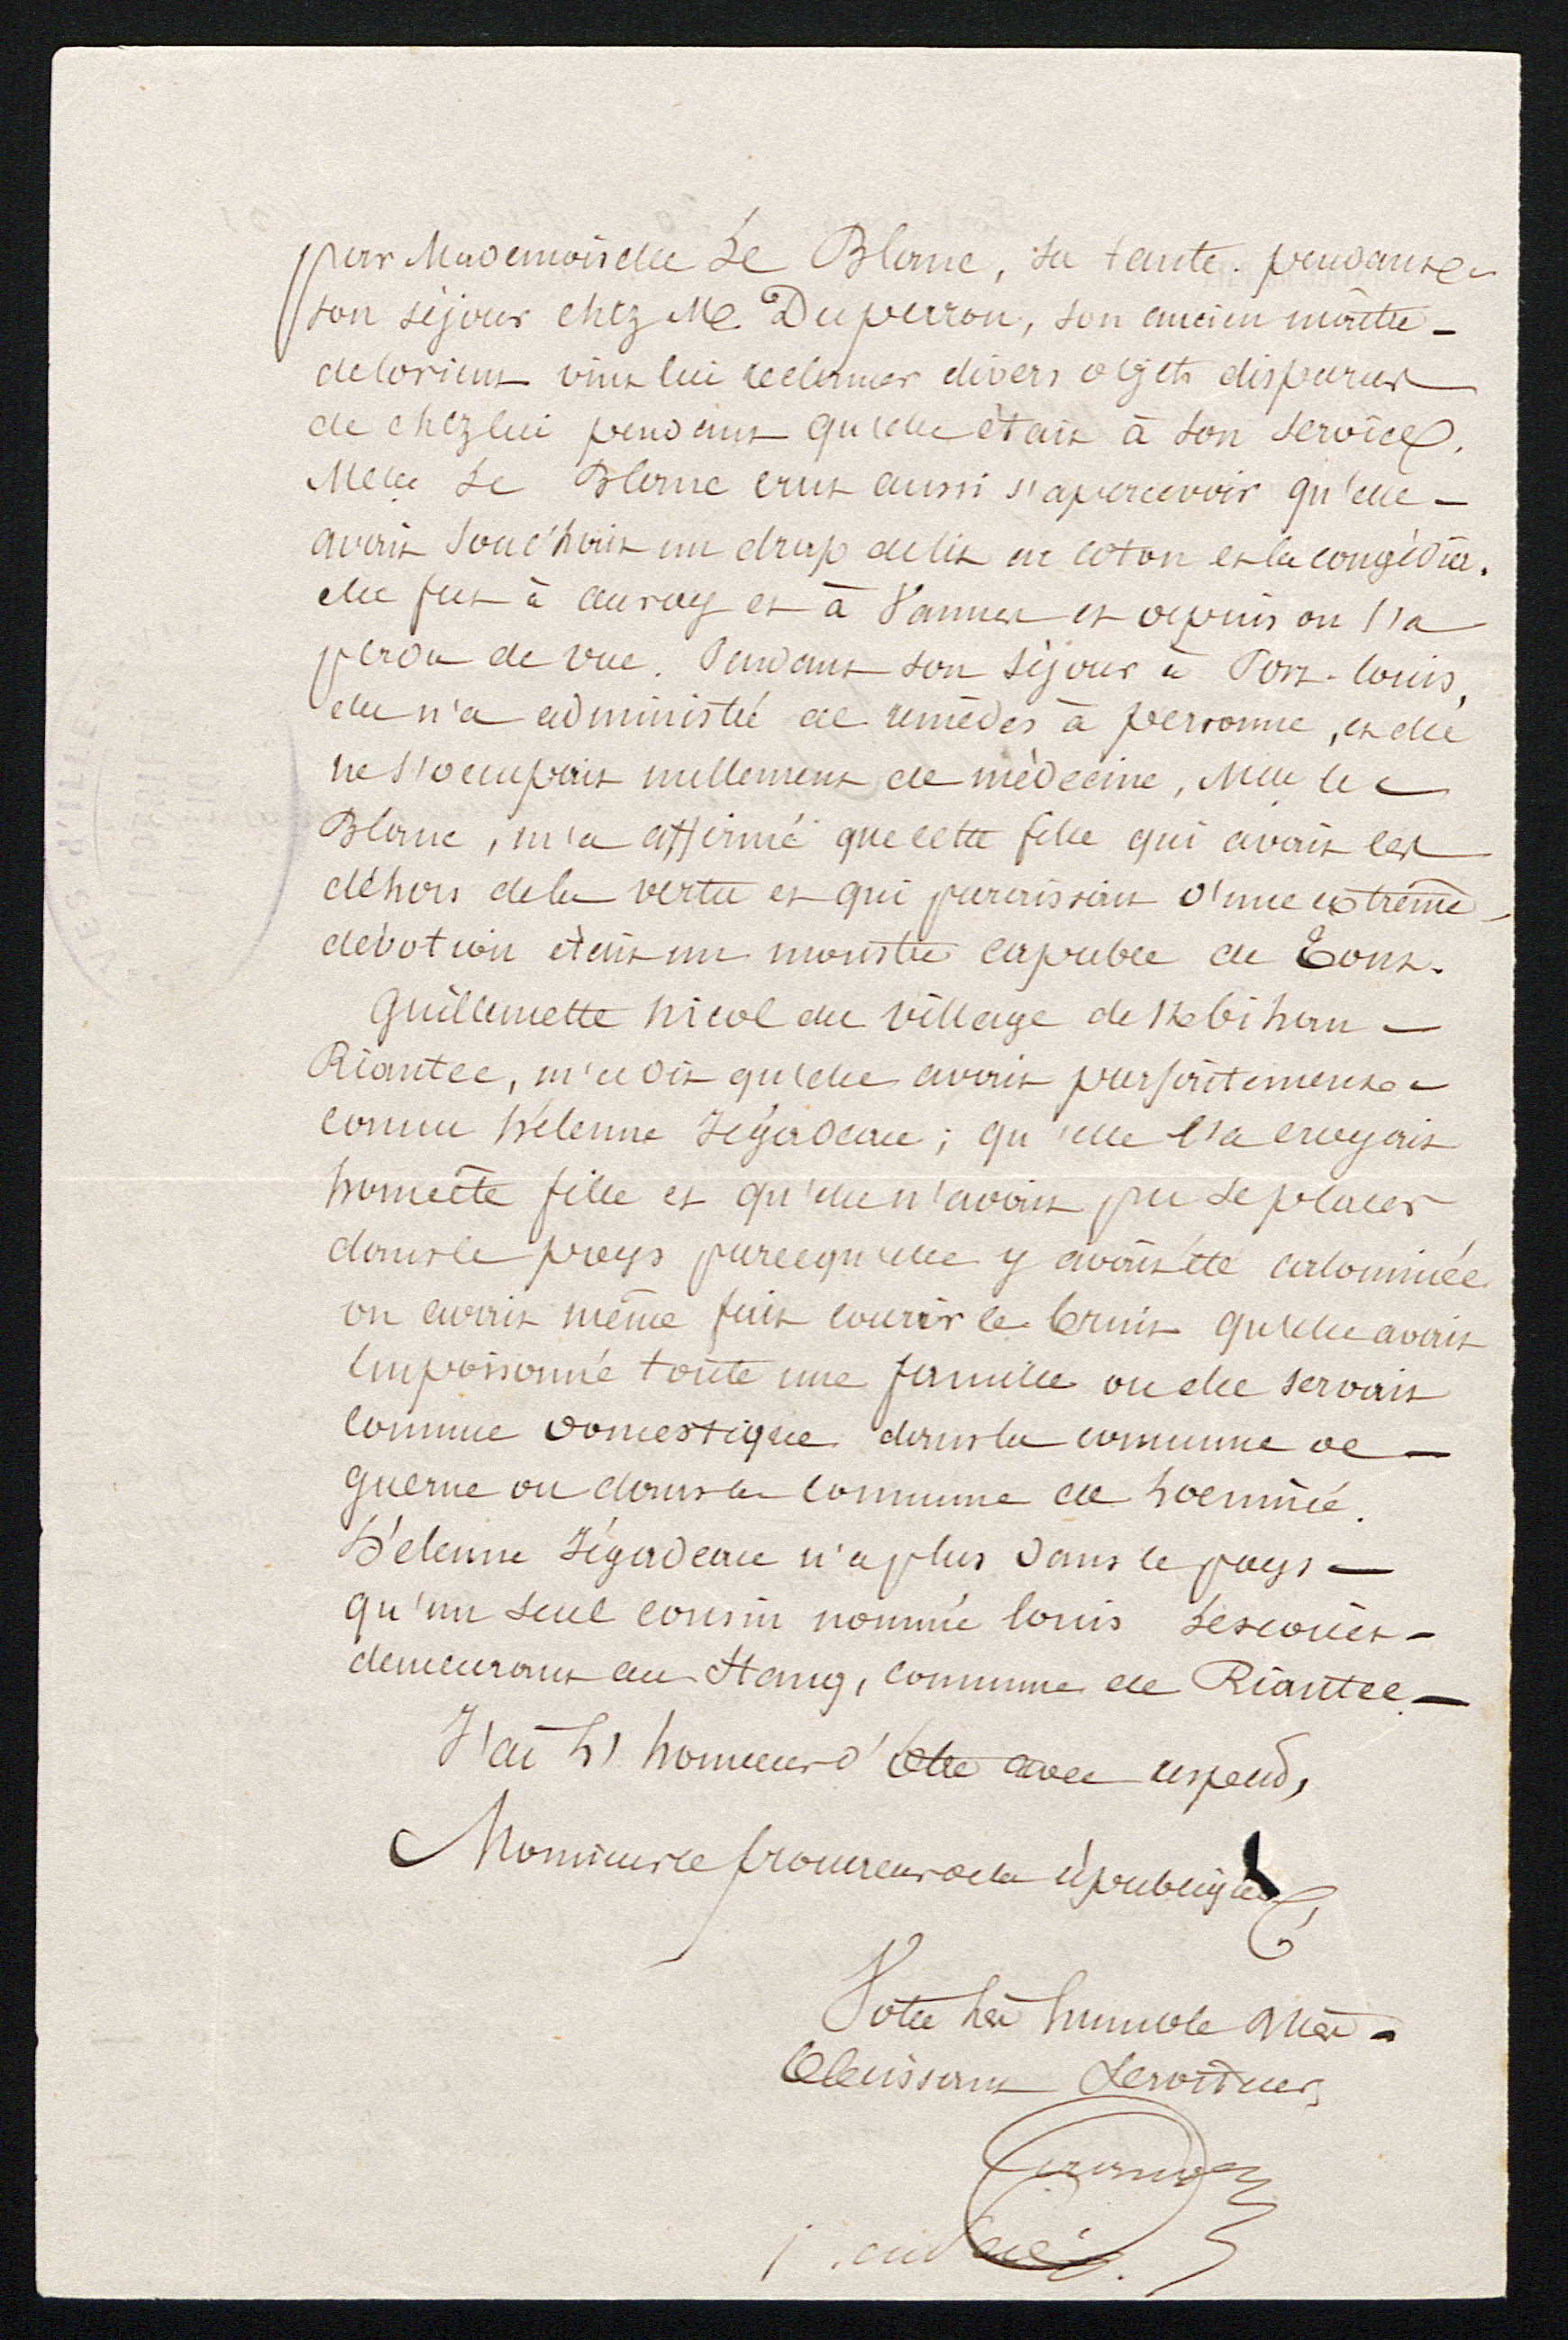 par Mademoiselle Le Blanc, sa tante. pendant
son séjour chez Mr Duperron, son ancien maître
de lorient vint lui reclamer divers objets disparus
de chez lui pendant qu'elle était à son service.
Melle Le Blanc crut aussi s'apercevoir qu'elle
avait soustrait un drap de lit en coton et la congédia.
elle fut à auray et à Vannes et depuis on l'a
perdu de vue. Pendant son séjour à Port-louis,
elle n'a administré de remèdes à personne, et elle
ne s'occupait nullement de médecine, Melle le
Blanc, m'a affirmé que cette fille qui avait les
déhors de la vertu et qui paraissait d'une extrême
dévotion était un monstre capable de Tout.
Guillemette Nicol du village de Kbihan
Riantec, m'a dit qu'elle avait parfaitement
connu hélenne Jégadeau ; qu'elle l'a croyait
honnête fille et qu'elle n'avait pu se placer
dans le pays parcequ'elle y avait été calominiée
on avait même fait courir le bruit qu'elle avait
Empoisonné toute une famille ou elle servait
comme domestique dans la commune de
guerne ou dans la commune de
hélenne Jégadeau n'a plus dans le pays
qu'un seul cousin nommé louis Lescouët
demeurant au Stang, commune de Riantec
J'ai l'honneur d'être avec respect,
Monsieur le procureur de la république
Votre très humble & très
Obéissant Serviteur